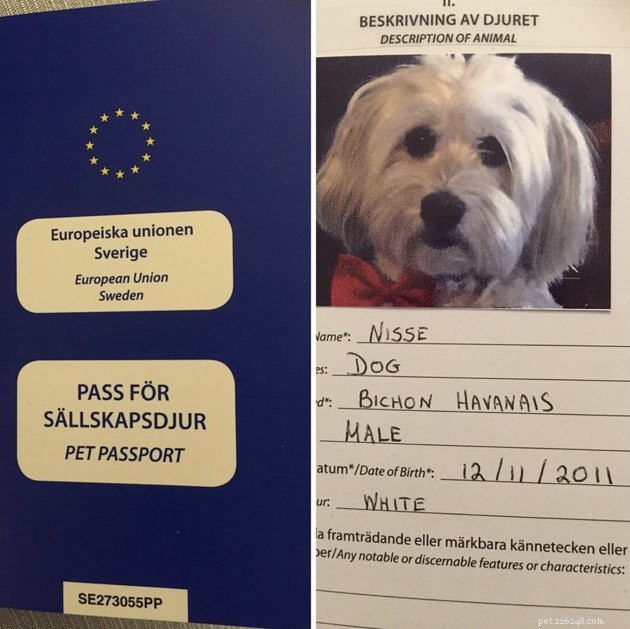 Europeiska unionen
Sverige
European Union
Sweden
PASS FÖR
SÄLLSKAPSDJUR
PET PASSPORT
SE273055PP
II.
BESKRIVNING AV DJURET
DESCRIPTION OF ANIMAL
Name*: NISSE
es: DOG
ed*: BICHON HAVANAIS
MALE
atum*/Date of Birth*: 12/11/2011
ur: WHITE
la framträdande eller märkbara kännetecken eller
per/Any notable or discernable features or characteristics:
pet.226248.com